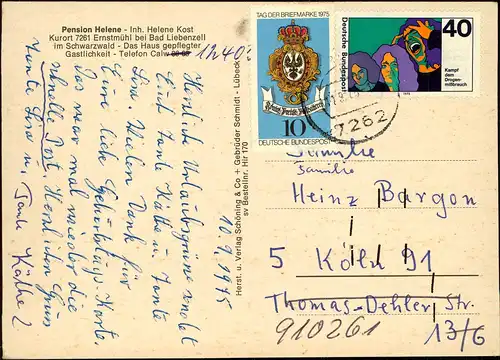 Pension Helene - Inh. Helene Kost
Kurort 7261 Ernstmühl bei Bad Liebenzell
im Schwarzwald - Das Haus gepflegter
Gastlichkeit - Telefon Calw
12402
10.9.1975
Herzliche Urlaubsgrüße sendet
Euch Tante Käthe u. Tante
Lina. Vielen Dank für
Eure liebe Geburtstags-Karte.
Das war mal wieder die
schnelle Post. Herzlichen Gruss
Tante Lina u. Tante Käthe
Herst. u. Verlag Schöning & Co + Gebrüder Schmidt - Lübeck
sv Bestellnr. Hir 170
TAG DER BRIEFMARKE 1975
10
DEUTSCHE BUNDESPOST
Deutsche Bundespost
40
Kampf
dem
Drogen-
mißbrauch
1975
7262
Familie
Familie
Heinz Bargon
5 Köln 91
Thomas-Dehler-Str.
910261 13/6